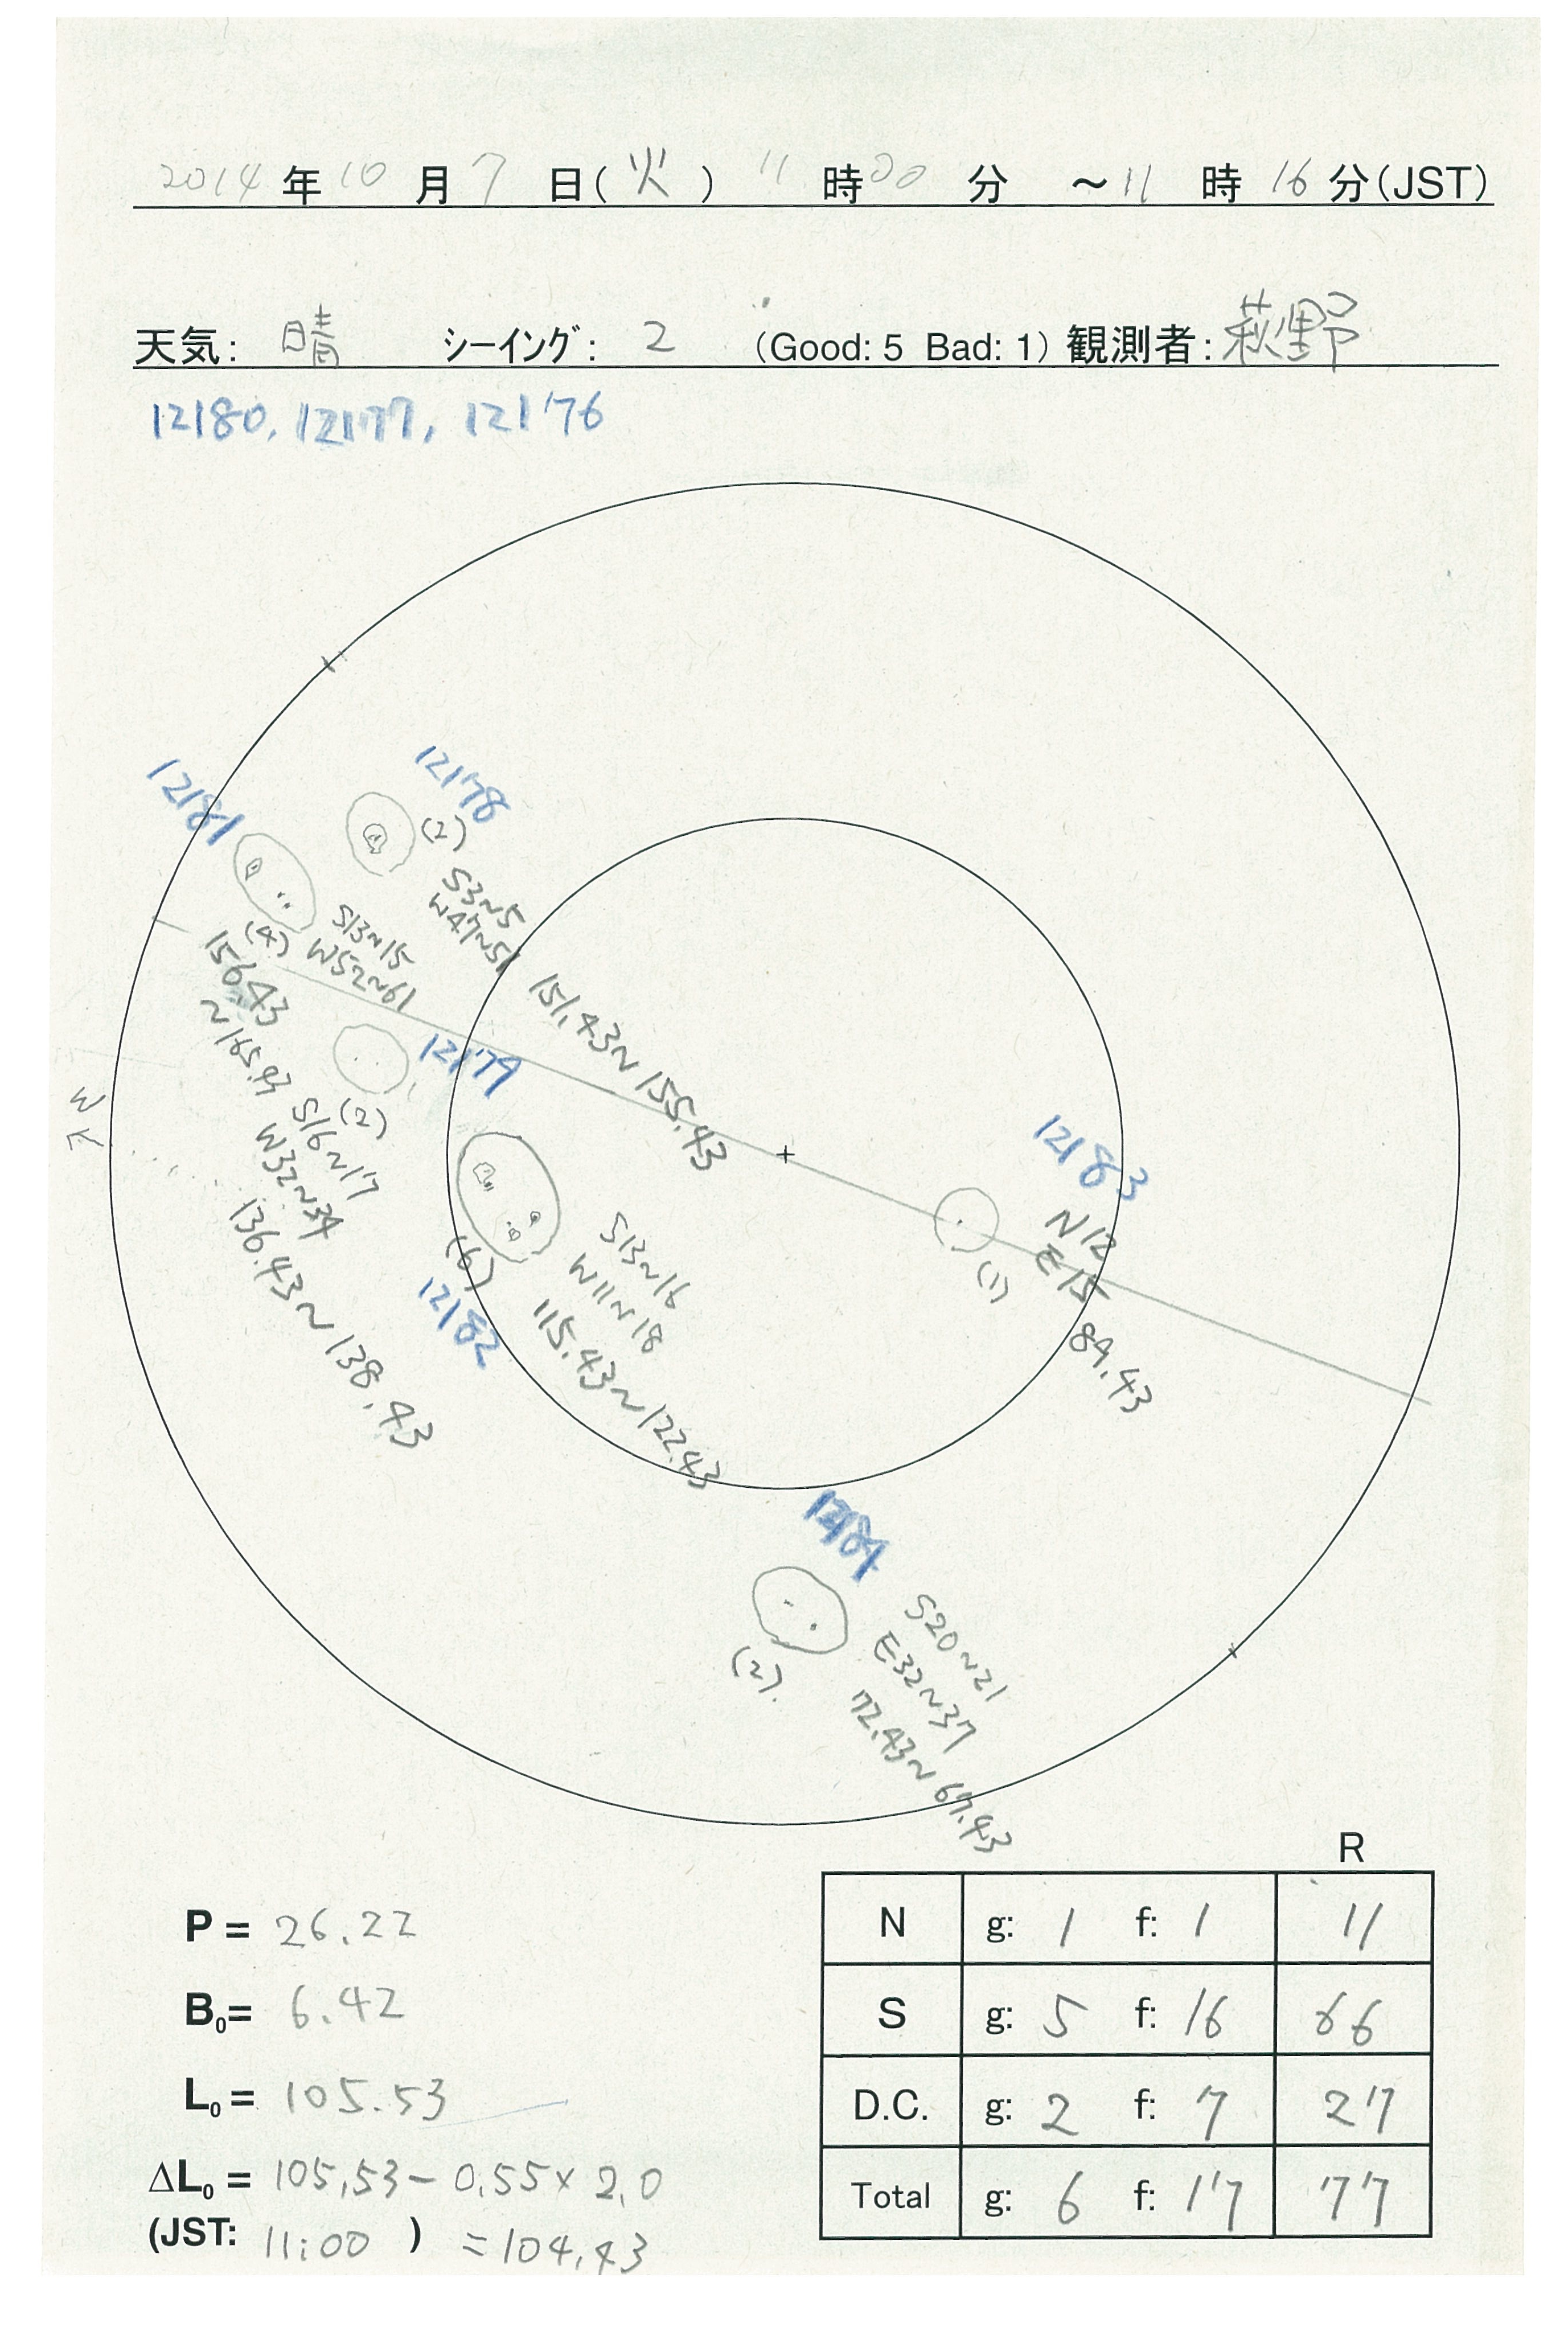 2014年10月7日(火) 11時00分 ～11時16分(JST)
天気: 晴 シーイング: 2 (Good: 5 Bad: 1) 観測者: 萩野
12180, 12177, 12176
12178
(2)
S3~5
W47~51
151.43~155.43
12181
(4)
S13~15
W52~61
156.43
~165.43
12179
(2)
S16~17
W32~34
136.43~138.43
W
12183
N12
E15
(1)
89.43
(6)
12182
S13~16
W11~18
115.43~122.43
(2)
S20~21
E32~37
72.43~67.43
R
N g: 1 f: 1 11
S g: 5 f: 16 66
D.C. g: 2 f: 7 27
Total g: 6 f: 17 77
P = 26.22
B0= 6.42
L0= 105.53
ΔL0= 105.53-0.55×2.0
(JST: 11:00 ) =104.43